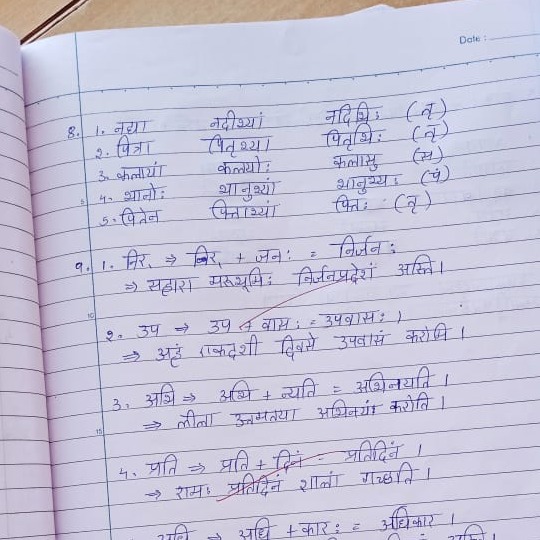 Date :
8. 1. नद्या नदीभ्यां नदिभिः (तृ)
2. पित्रा पितृभ्या पितृभिः (तृ)
3. कलायां कलयोः कलासु (स)
4. भानोः भानुभ्यां भानुभ्यः (पं)
5. पितेन पिताभ्यां पितः (तृ)
9. 1. निर् ⇒ निर् + जनः = निर्जनः
⇒ सहारा मरूभूमिः निर्जनप्रदेशं अस्ति।
2. उप ⇒ उप + वासः = उपवासः।
⇒ अहं एकदशी दिवसे उपवासं करोमि।
3. अभि ⇒ अभि + न्यति = अभिनयति।
⇒ लीला उत्तमतया अभिनयं करोति।
4. प्रति ⇒ प्रति + दिनं = प्रतिदिनं।
⇒ रामः प्रतिदिनं शालां गच्छति।
अधि ⇒ अधि + कारः = अधिकार।